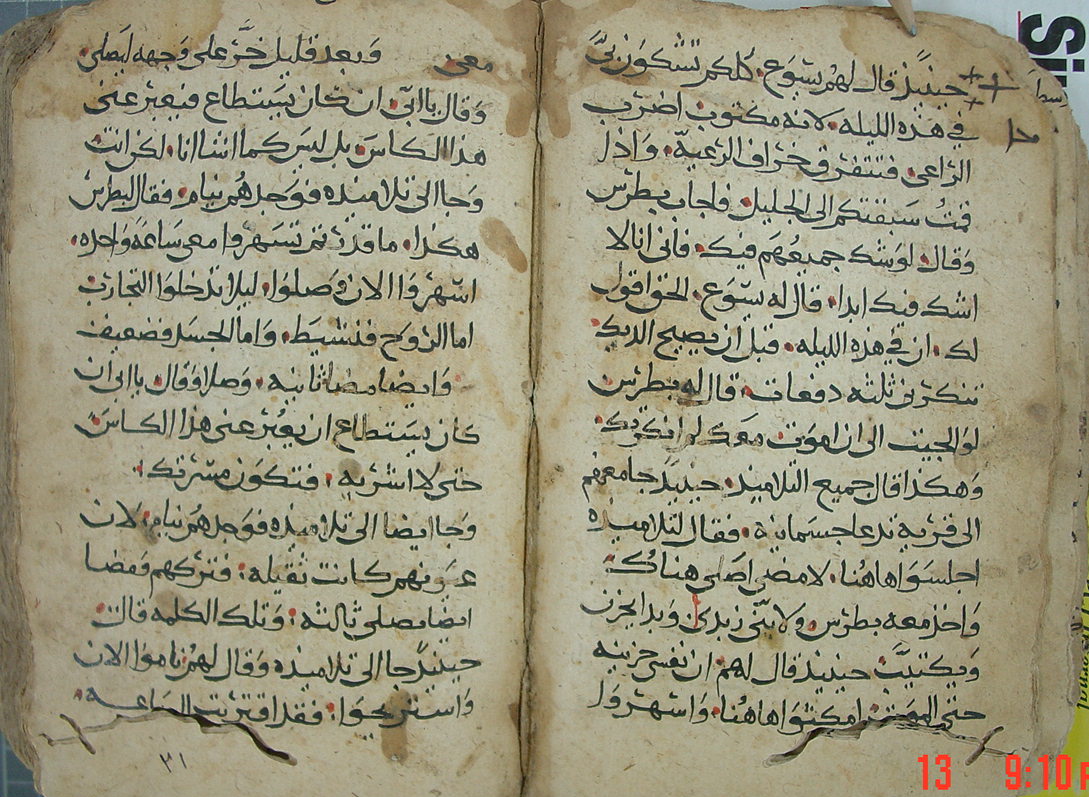 حينيذ قال لهم يسوع. كلكم تشكون فيَّ
في هذه الليله. لانه مكتوب اضرب
الراعي. فتتفرق خراف الرعية. واذا
قمتُ سبقتكم الى الجليل. فاجاب بطرس
وقال. لو شك جميعهم فيك. فاني انا لا
اشك فيك ابدا. قال له يسوع. الحق اقول
لك. ان في هذه الليله. قبل ان يصيح الديك
تنكرني ثلثه دفعات. قال له بطرس
لو الجيت الى ان اموت معك لم انكرك.
وهكذا قال جميع التلاميذ. حينيذ جا معهم
الى قريه تدعا جسمانية. فقال لتلاميذه
اجلسوا هاهنا. لامضي اصلي هناك
واخذ معه بطرس. ولابنَي زبدي. وبدا يحزن
ويكتيب حينيذ قال لهم ان نفسي حزينه
حتى الموت امكثوا هاهنا. واسهروا
معي وبعد قليل خرَّ على وجهه ليصلي
وقال يا ابي. ان كان يستطاع فيعبر عني
هذا الكاس. بل ليس كما اشا انا. لكن انت
وجا الى تلاميذه فوجدهم نيام. فقال لبطرس
هكذا. ما قدرتم تسهروا معي ساعةً واحده.
اسهروا الان وصلوا. ليلا تدخلوا التجارب
اما الروح فنشيط. واما الجسد فضعيف
وايضا مضا ثانيه. وصلا وقال يا ابي ان
كان يستطاع ان يعبر عني هذا الكاس
حتى لا اشربه. فتكون مسرتك.
وجا ايضا الى تلاميذه فوجدهم نيام. لان
عيونهم كانت ثقيله. فتركهم ومضا
ايضا يصلي ثالثه. وتلك الكلمه قال.
حينيذ جا الى تلاميذه وقال لهم ناموا الان
واستريحوا. فقد اقتربت الساعه.
٢١
13 9:10